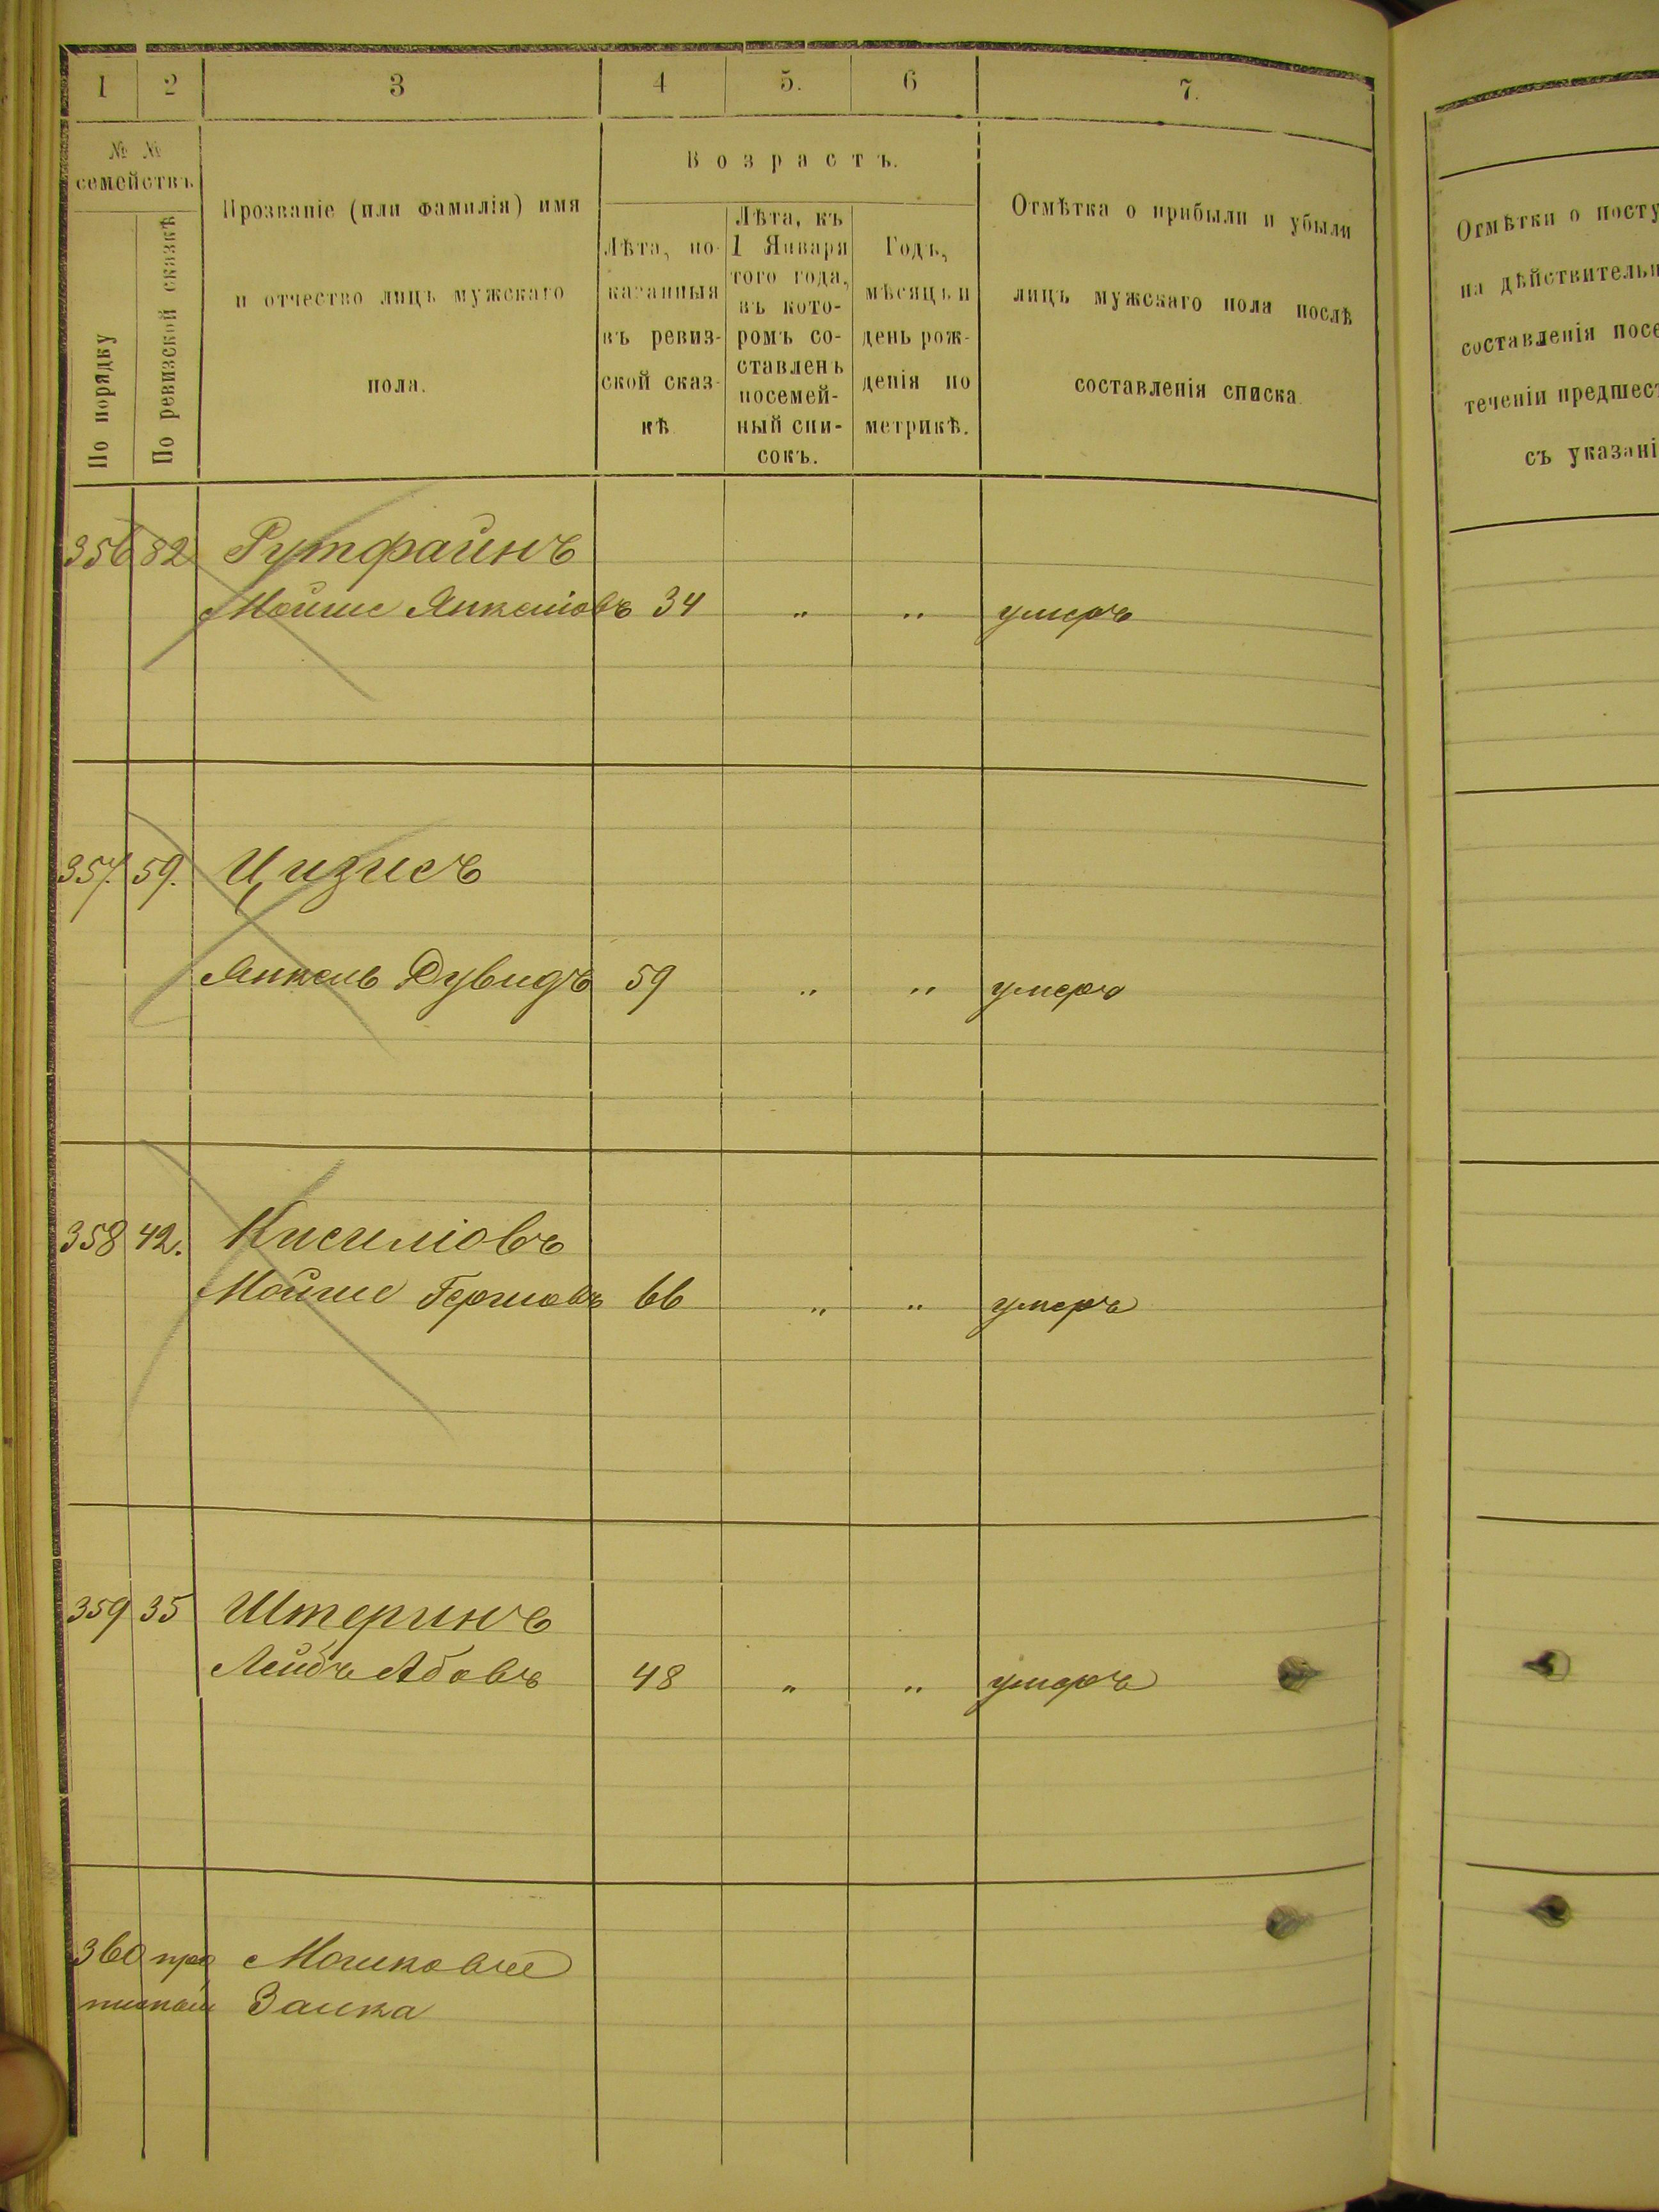 1 2 3 4 5. 6 7.
№ № семействъ
По порядку
По ревизской сказкѣ
Прозваніе (или фамилія) имя
и отчество лицъ мужскаго
пола.
Возрастъ.
Лѣта, по-
казанныя
въ ревиз-
ской сказ-
кѣ
Лѣта, къ
1 Января
того года,
въ кото-
ромъ со-
ставленъ
посемей-
ный спи-
сокъ.
Годъ,
мѣсяцъ и
день рож-
денія по
метрикѣ.
Отмѣтка о прибыли и убыли
лицъ мужскаго пола послѣ
составленія списка
356 82 Рутфайнъ
Мойше Янкеліовъ 34 „ „ умеръ
357. 59. Цизисъ
Янкель Дувидъ 59 „ „ умеръ
358 42. Кисиліовъ
Мойше Гершовъ 66 „ „ умеръ
359 35 Штеринъ
Лейбъ Абовъ 48 „ „ умеръ
360 Мошковѣе
Заика
Отмѣтки о посту
на дѣйствительн
составленія посе
теченіи предшест
съ указані